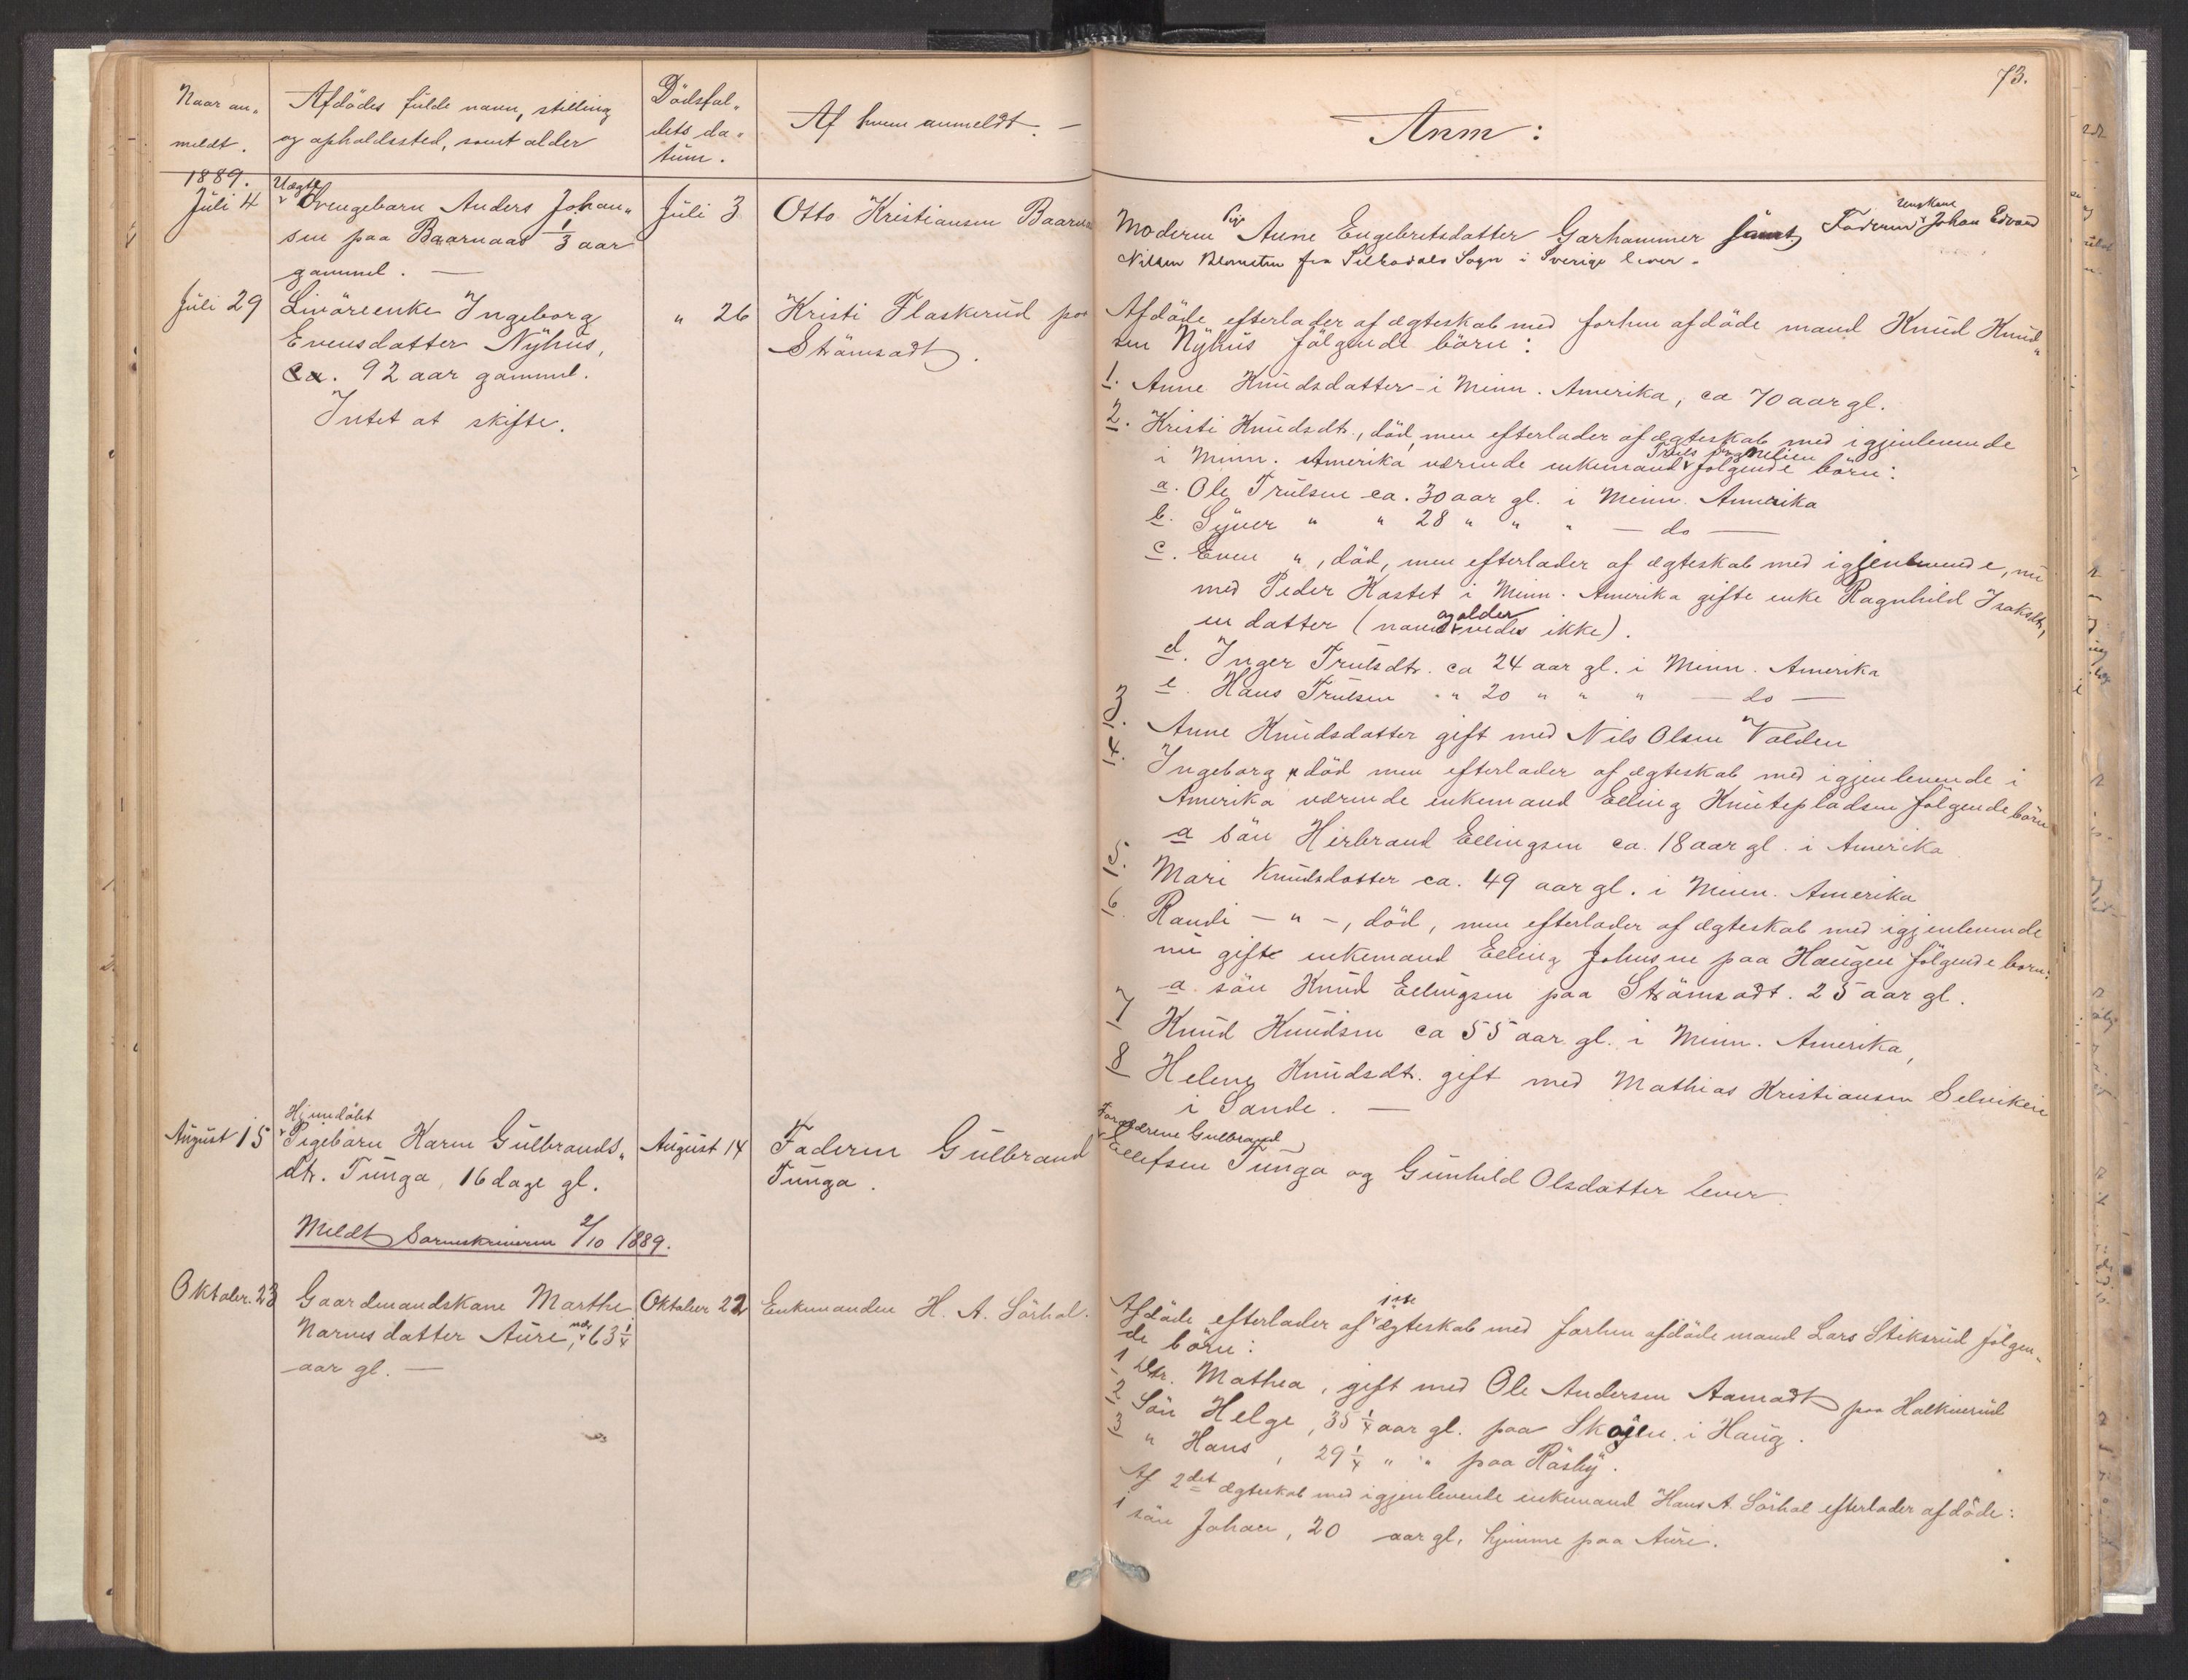 73.
Naar an-
meldt.
Afdödes fulde navn, stilling
og opholdssted, samt alder
Dödsfal-
dets da-
tum.
Af hvem anmeldt. —
Anm:
1889.
Juli 4
Uægte
Drengebarn Anders Johan-
sen paa Baarnaas 1/3 aar
gammel. —
Juli 3
Otto Kristiansen Baarnaas
Moderen Pige Anne Engebretsdatter Garhammer samt Faderen Ungkarl Johan Edvard
Nilsen fra Silbodals Sogn i Sverige lever.
Juli 29
Livöreenke Ingeborg
Evensdatter Nÿhus,
Ca. 92 aar gammel.
Intet at skifte.
" 26
Kristi Flaskerud paa
Strömsodt.
Afdöde efterlader af ægteskab med forhen afdöde mand Knud Knud-
sen Nÿhus fölgende börn:
1. Anne Knudsdatter i Minn. Amerika, ca 70 aar gl.
2. Kristi Knudsdt., död, men efterlader af ægteskab med igjenlevende
i Minn. Amerika værende enkemand Truls fölgende börn:
a. Ole Trulsen ca. 30 aar gl. i Minn. Amerika
b. Syver " " 28 " " " — do —
c. Even ", död, men efterlader af ægteskab med igjenlevende, nu
med Peder Hastet i Minn. Amerika gifte enke Ragnhild Isaksdt,
en datter (navn og alder vides ikke).
d. Inger Trulsdt. ca 24 aar gl. i Minn. Amerika
e. Hans Trulsen " 20 " " " — do —
3. Anne Knudsdatter gift med Nils Olsen Volden
4. Ingeborg död men efterlader af ægteskab med igjenlevende i
Amerika værende enkemand Elling Knutepladsen fölgende börn
a sön Herbrand Ellingsen ca. 18 aar gl. i Amerika
5. Mari Knudsdatter ca. 49 aar gl. i Minn. Amerika
6. Randi — " —, död, men efterlader af ægteskab med igjenlevende
nu gifte enkemand Elling Johnsen paa Haugen fölgende born:
a. sön Knud Ellingsen paa Strömsodt. 25 aar gl.
7 Knud Knudsen ca 55 aar gl. i Minn. Amerika,
8 Helene Knudsdt. gift med Mathias Kristiansen Selviken
i Sande. —
August 15
Hjemdöbt
Pigebarn Karen Gulbrands-
dt. Tunga, 16 dage gl.
August 14
Faderen Gulbrand
Tunga.
Forældrene Gulbrand
Ellefsen Tunga og Gunhild Olsdatter lever
Meldt Sorenskriveren 2/10 1889.
Oktober. 23
Gaardmandskone Marthe
Narvesdatter Aure, 63 1/4
aar gl. —
Oktober 22
Enkemanden H. A. Sörhol.
Afdöde efterlader af 1ste ægteskab med forhen afdöde mand Lars Stiksrud fölgen-
de börn:
1 Dtr. Mathea, gift med Ole Andersen Aamodt paa Halkinrud
2 Sön Helge, 35 1/4 aar gl. paa Skojen i Haug.
3 " Hans, 29 1/4 " " paa Räsby.
Af 2det ægteskab med igjenlevende enkemand Hans A. Sörhol efterlader afdöde:
1 sön Johan, 20 aar gl. hjemme paa Aure.